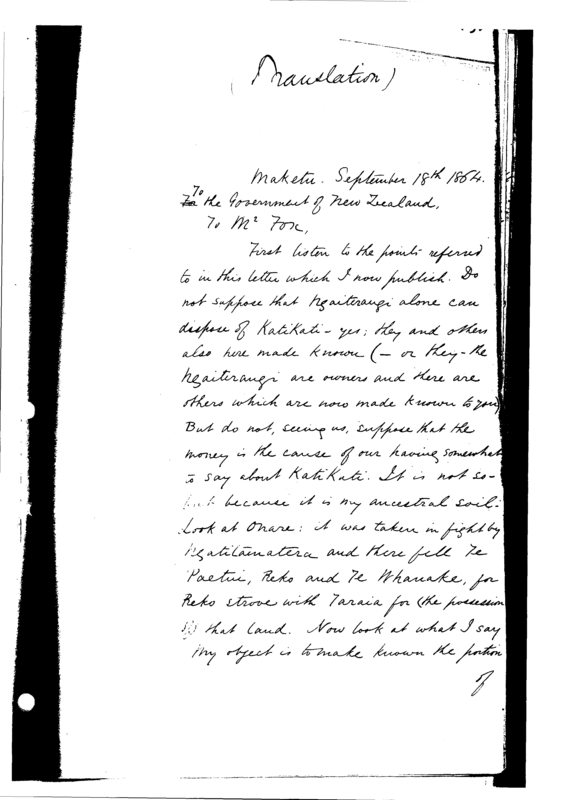 (Translation)
Maketu. September 18th 1864.
To the Government of New Zealand,
To Mr Fox,
First listen to the points referred
to in this letter which I now publish. Do
not suppose that Ngaiterangi alone can
dispose of KatiKati - yes; they and others
also here made known (- or they - the
Ngaiterangi are owners and there are
others which are now made known to you)
But do not, seeing us, suppose that the
money is the cause of our having somewhat
to say about KatiKati. It is not so -
but because it is my ancestral soil.
Look at Onare: it was taken in fight by
Ngatitamatera and there fell Te
Paetui, Reko and Te Whanake, for
Reko strove with Taraia for (the possession
of) that land. Now look at what I say
My object is to make known the portion
of